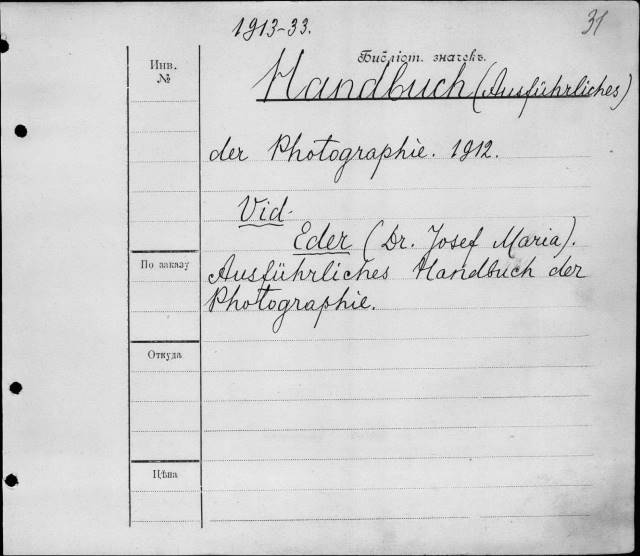 1913-33.
31
Инв.
№
Библіот. значекъ.
Handbuch (Ausführliches)
der Photographie. 1912.
Vid.
Eder (Dr. Josef Maria).
По заказу
Ausführliches Handbuch der
Photographie.
Откуда
Цѣна